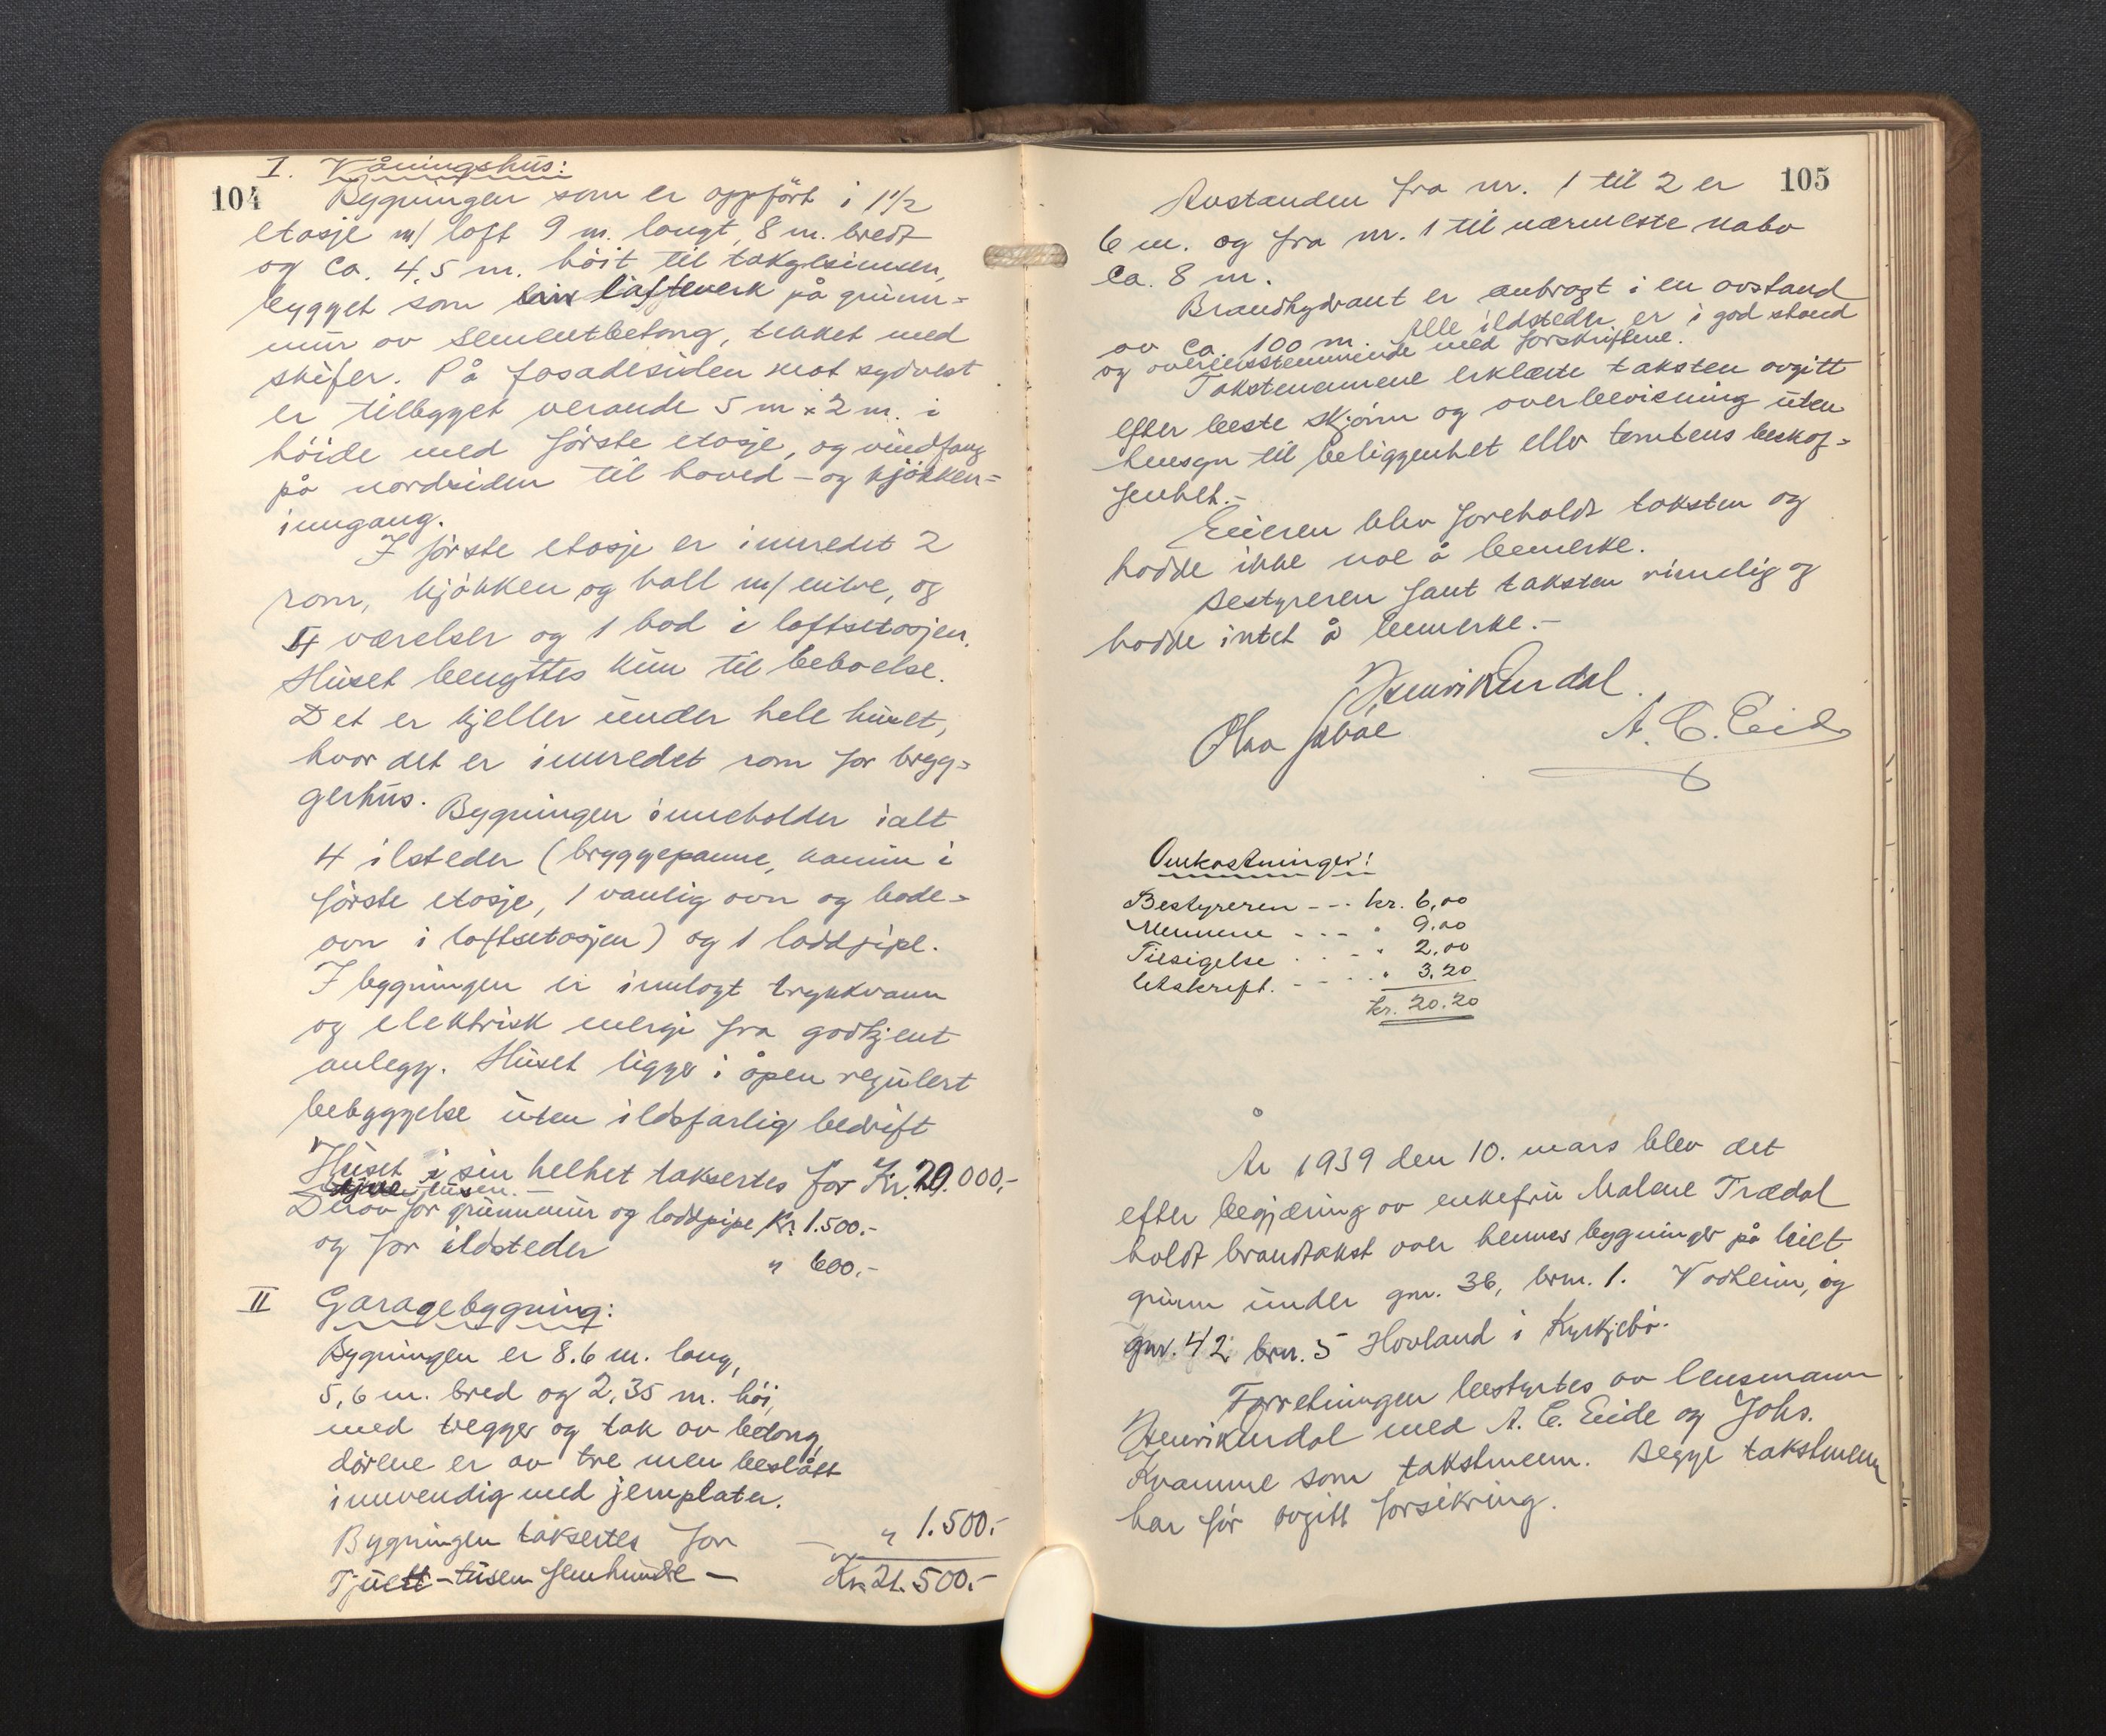 104
I. Våningshus:
Bygningen som er oppført i 1½
etasje m/ loft 9 m. langt, 8 m. bredt
og ca. 4,5 m. höit til takgesimsen,
bygget som lafteverk på grunn-
mur av sementbetong, tekket med
skifer. På fasadesiden mot sydvest
er tilbygget veranda 5 m x 2 m. i
höide med förste etasje, og vindfang
på nordsiden til hoved- og kjökken-
inngang.
I förste etasje er innredet 2
rom, kjökken og hall m/ entre, og
4 værelser og 1 bod i loftsetasjen.
Huset benyttes kun til beboelse.
Det er kjeller under hele huset,
hvor det er innredet rom for brygg-
gerhus. Bygningen inneholder ialt
4 ilsteder (bryggepanne, kamin i
förste etasje, 1 vanlig ovn og bade-
ovn i loftsetasjen) og 1 loddpipe.
I bygningen er innlagt trykkvann
og elektrisk energi fra godkjent
anlegg. Huset ligger i åpen regulert
bebyggelse uten ildsfarlig bedrift
Huset i sin helhet taksertes for Kr. 20.000,-
tjuetusen.-
Derav for grunnmur og loddpipe Kr. 1.500.-
og for ildsteder " 600.-
II Garagebygning:
Bygningen er 8.6 m. lang,
5,6 m. bred og 2,35 m. höi,
med vegger og tak av betong,
dörene er av tre men beslått
innvendig med jernplater.
Bygningen taksertes for — " 1.500.-
Tjueett-tusen femhundre — Kr. 21.500.-
105
Avstanden fra nr. 1 til 2 er
6 m. og fra nr. 1 til nærmeste nabo
ca. 8 m.
Brandhydrant er anbragt i en avstand
av ca. 100 m. Alle ildsteder er i god stand
og overensstemmende med forskriftene.
Takstmennene erklærte taksten avgitt
efter beste skjönn og overbevisning uten
hensyn til beliggenhet eller tomtens beskaf-
fenhet.-
Eieren blev foreholdt taksten og
hadde ikke noe å bemerke.
Bestyreren fant taksten rimelig og
hadde intet å bemerke.-
Henrik Undal.
Olav A. C. Eide
Omkostninger:
Bestyreren - - - kr. 6,00
Mennene - - - " 9.00
Tilsigelse . . - " 2.00
Utskrift. - - . . " 3.20
kr. 20.20
År 1939 den 10. mars blev det
efter begjæring av enkefru Malene Trædal
holdt brandtakst over hennes bygninger på leiet
grunn under gnr. 36, brn. 1. Vadheim, og
gnr. 42 brn. 5 Hovland i Kyrkjebö.
Forretningen bestyrtes av lensmann
Henrik Undal med A. C. Eide og Johs.
Kvamme som takstmenn. Begge takstmenn
har för avgitt forsikring.